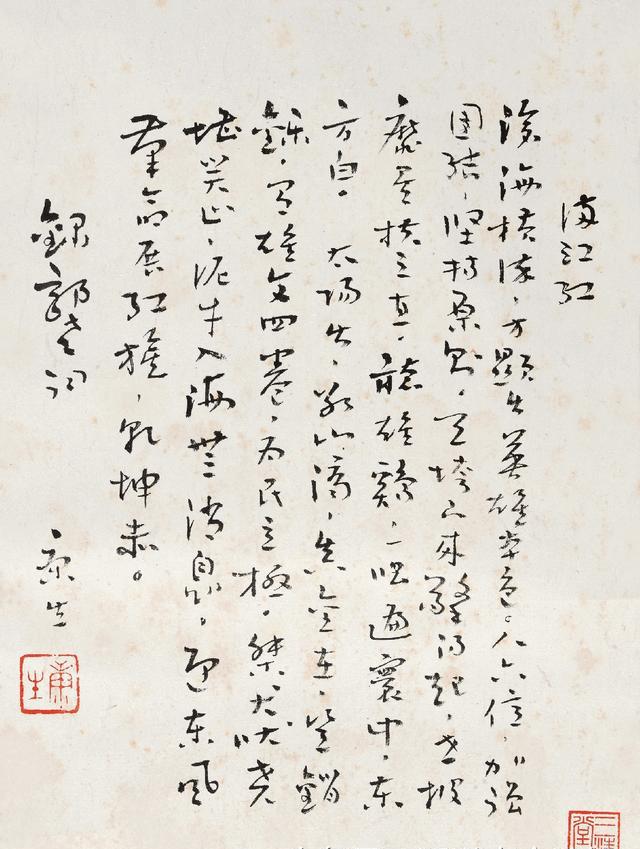 满江红
滄海横流，方顯出英雄本色。人六億，加强
团结，坚持原則。天垮下來擎得起，世披
靡矣扶之直。聽雄鷄，一唱遍寰中，東
方白。 太陽出，冰山滴，真金在，豈銷
鑠，有雄文四卷，为民立極。桀犬吠尧
堪笑止，泥牛入海無消息。迎东風
革命展红旗，乾坤赤。
錄郭老词 康生
康生